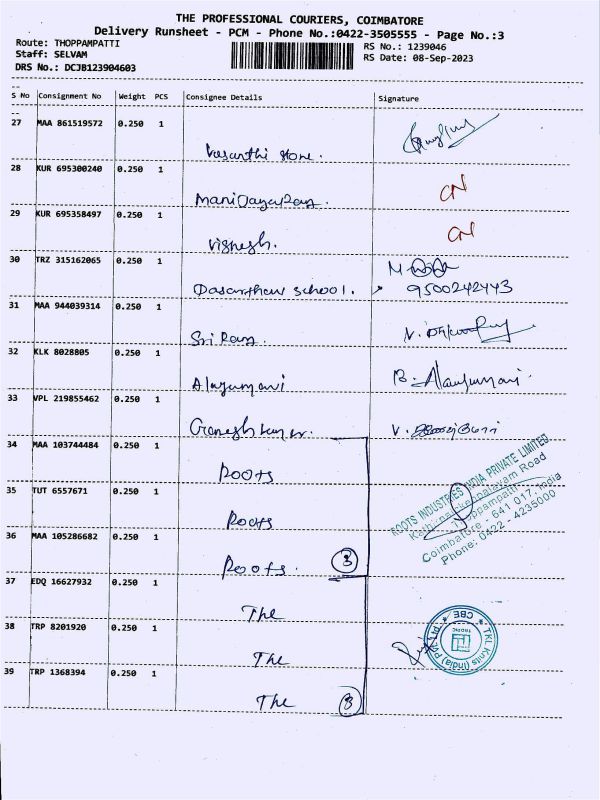 THE PROFESSIONAL COURIERS, COIMBATORE
Delivery Runsheet - PCM - Phone No.:0422-3505555 - Page No.:3
Route: THOPPAMPATTI
Staff: SELVAM
DRS No.: DCJB123904603
RS No.: 1239046
RS Date: 08-Sep-2023
S No Consignment No Weight PCS Consignee Details Signature
27 MAA 861519572 0.250 1
Vasanthi Store.
28 KUR 695300240 0.250 1
CN
29 KUR 695358497 0.250 1
Vignesh.
CN
30 TRZ 315162065 0.250 1
school. 9500242443
31 MAA 944039314 0.250 1
Sri Ram
32 KLK 8028805 0.250 1
Alagumani B. Alagumani
33 VPL 219855462 0.250 1
Ganesh kumar. V.
34 MAA 103744484 0.250 1
Roots
35 TUT 6557671 0.250 1
Roots
36 MAA 105286682 0.250 1
Roots. 3
ROOTS INDUSTRIES INDIA PRIVATE LIMITED
Road
Thoppampatti
Coimbatore - 641 017, India
Phone: 0422 - 4235000
37 EDQ 16627932 0.250 1
The
38 TRP 8201920 0.250 1
The
39 TRP 1368394 0.250 1
The 3
TKL Knits (India) Pvt Ltd
* CBE *